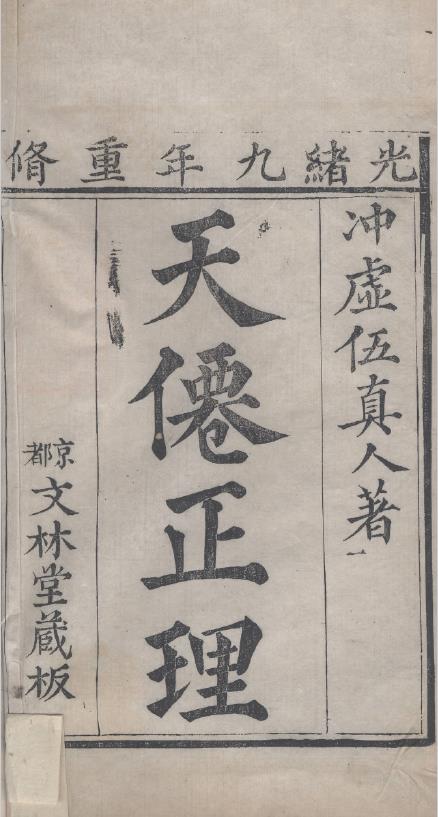 光緒九年重脩
冲虛伍真人著
天僊正理
京都文林堂藏板